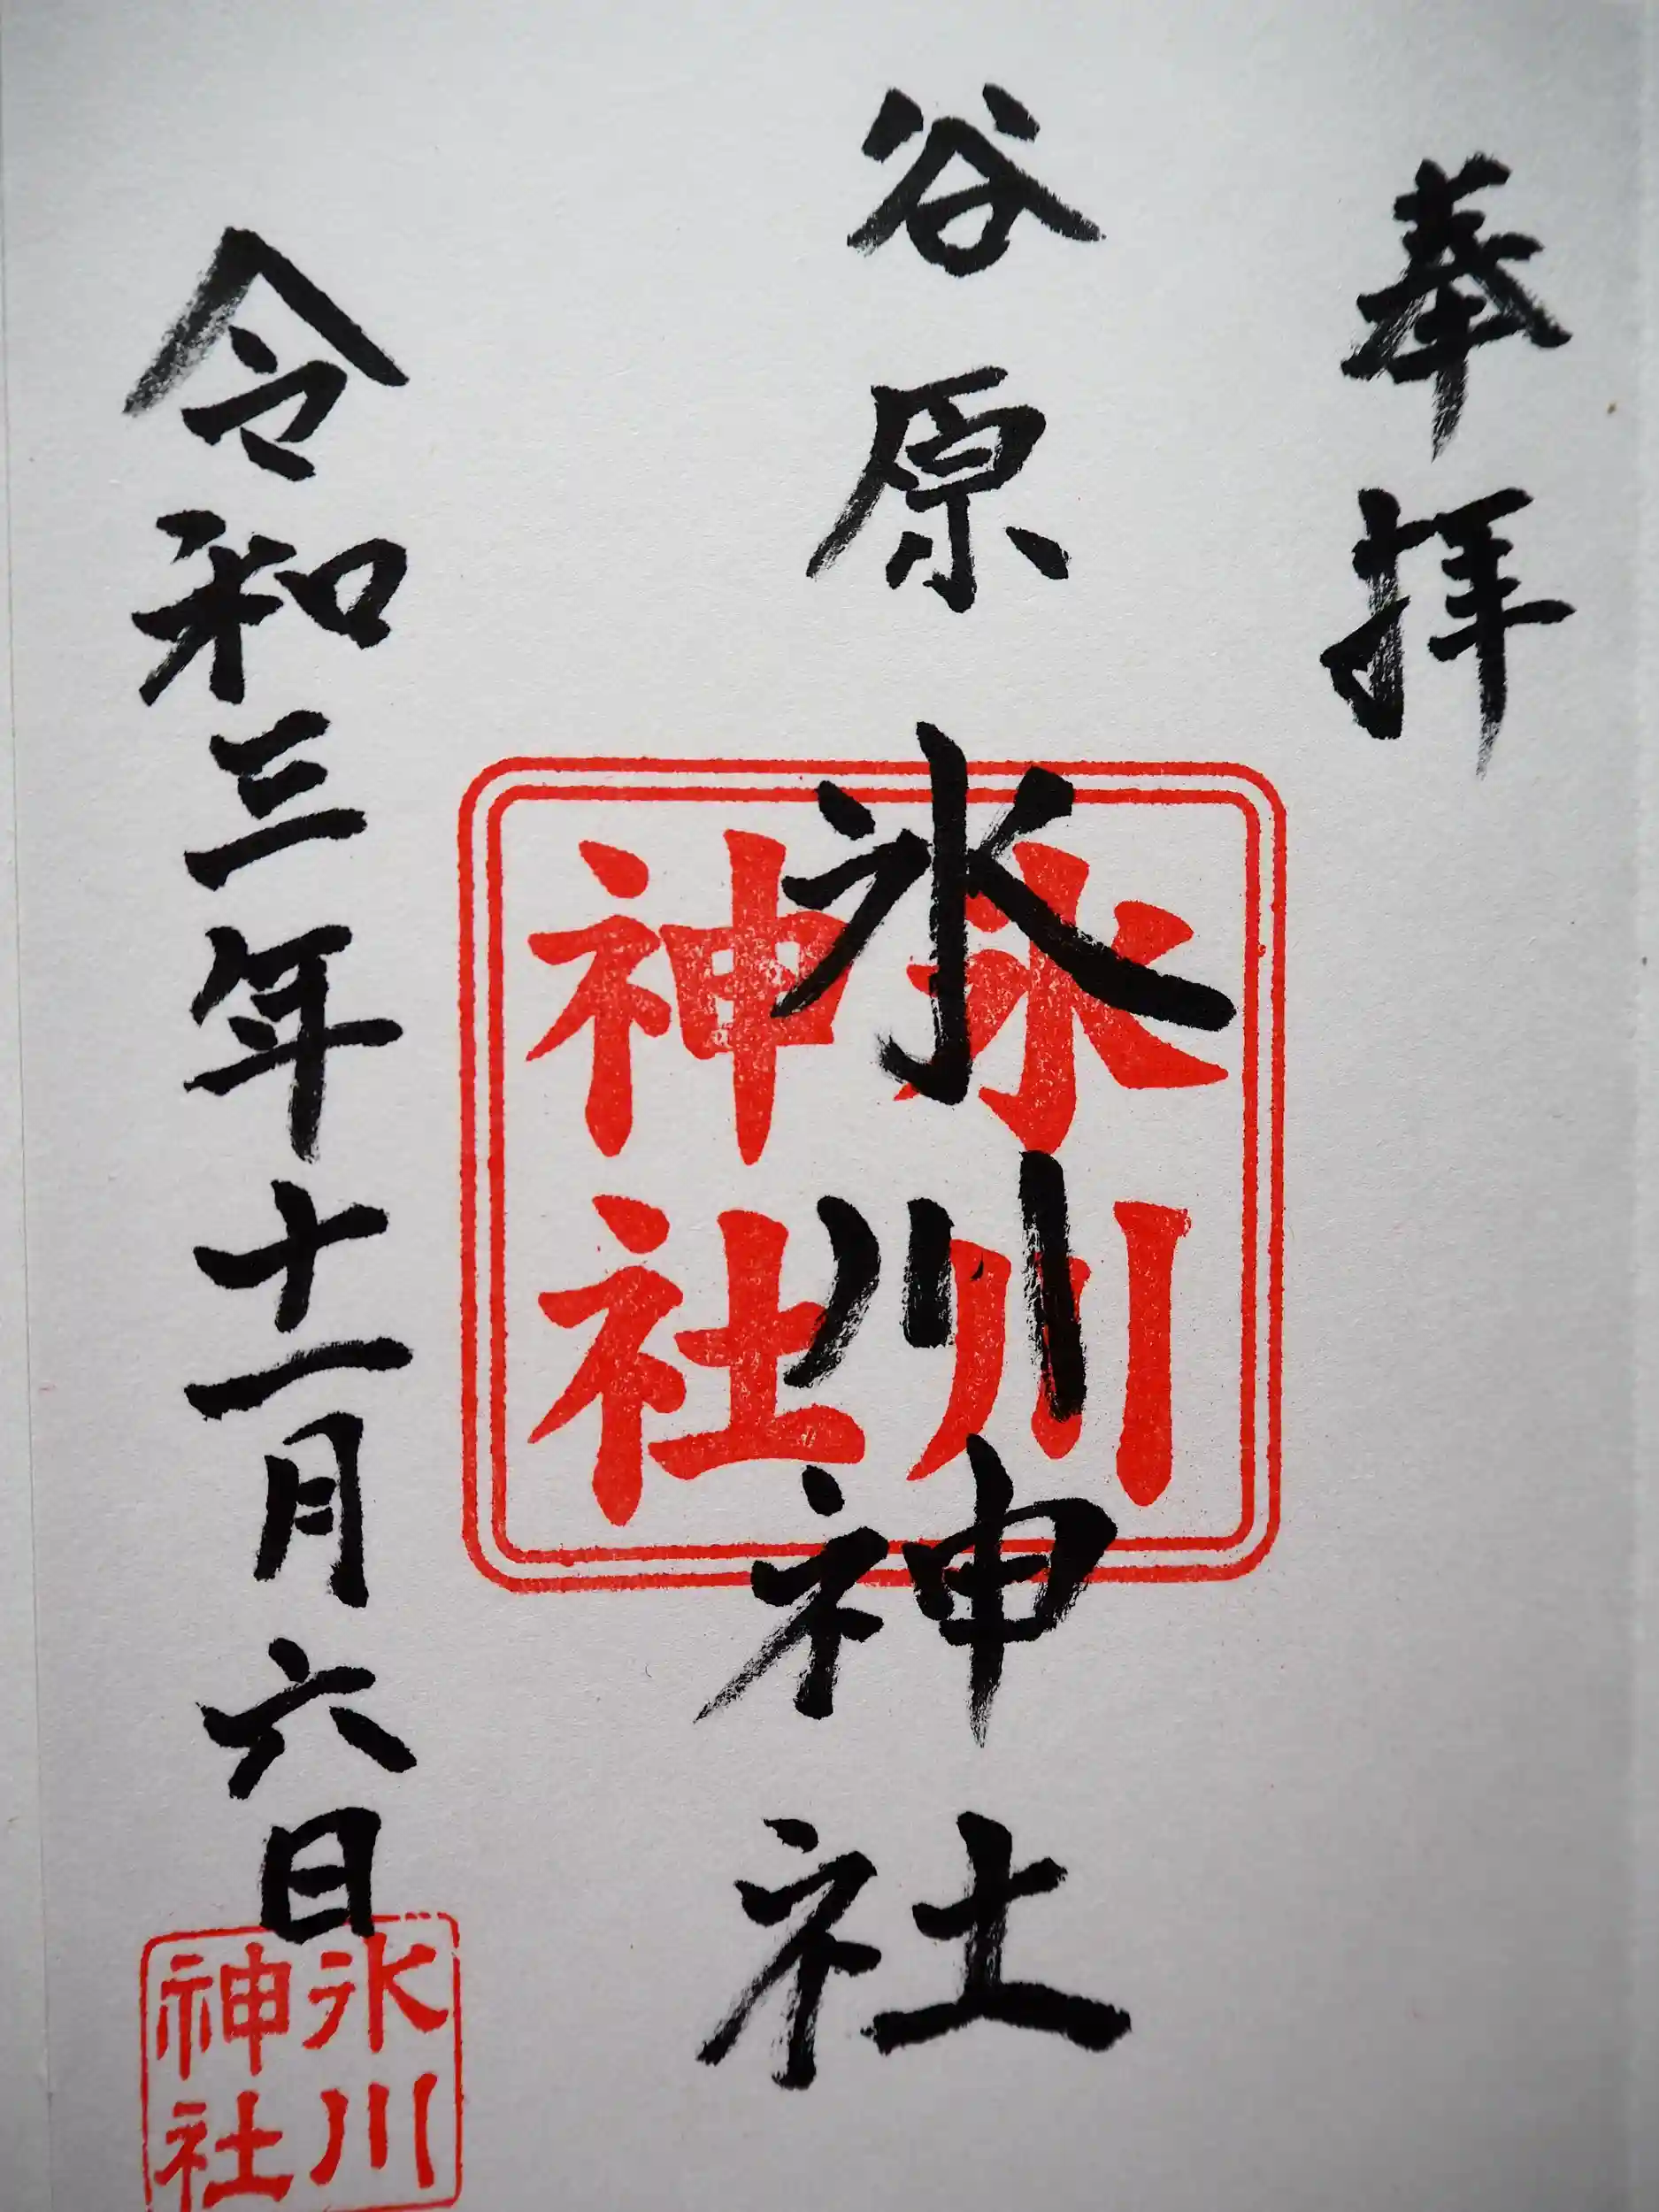 奉拝
谷原氷川神社
氷川
神社
令和三年十一月六日
氷川
神社